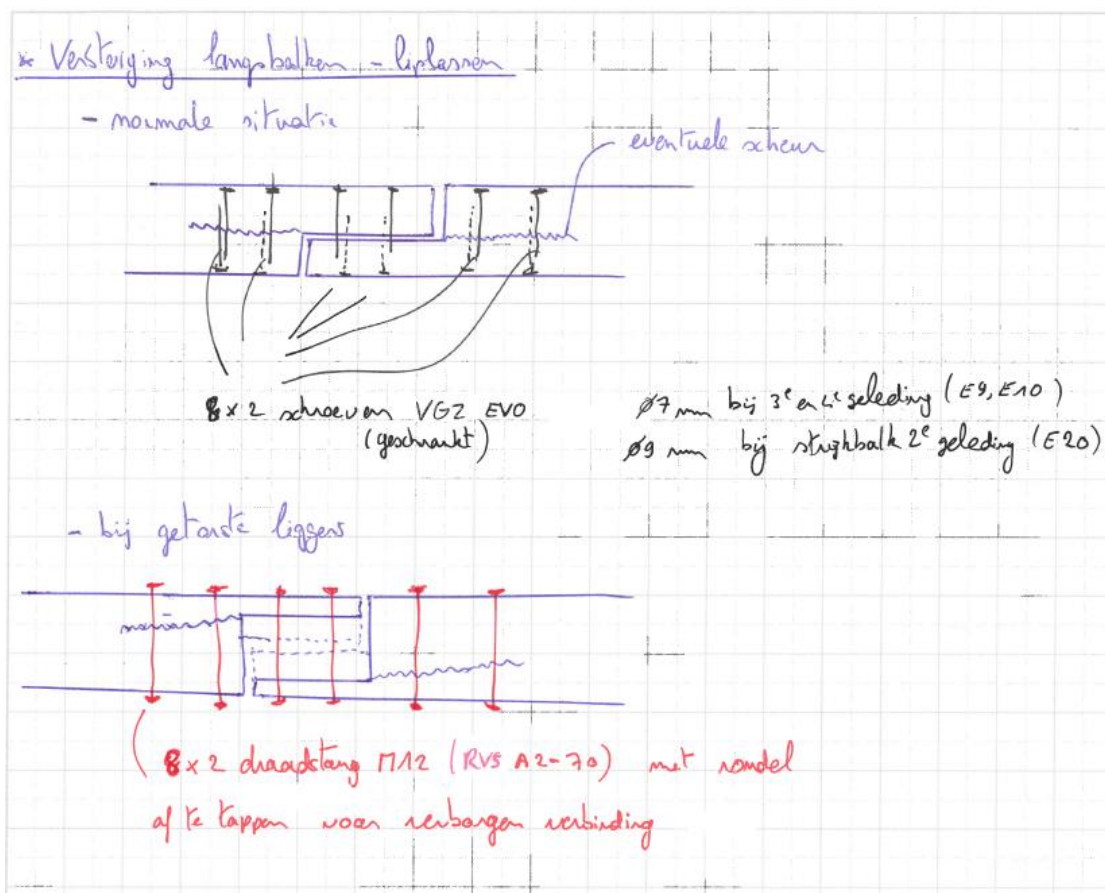 * Versteviging langsbalken - liplassen
- normale situatie
eventuele scheur
8 x 2 schroeven VGZ EVO
(geschrankt)
ø7 mm bij 3e en 4e geleding (E9, E10)
ø9 mm bij strijkbalk 2e geleding (E20)
- bij getorste liggers
8 x 2 draadstang M12 (RVS A2-70) met rondel
af te tappen voor verborgen verbinding